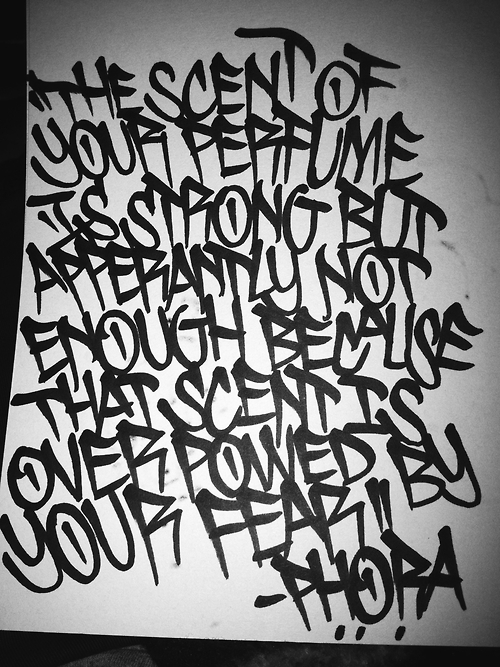 "THE SCENT OF
YOUR PERFUME
IS STRONG BUT
APPERANTLY NOT
ENOUGH BECAUSE
THAT SCENT IS
OVER POWED BY
YOUR FEAR"
-PHORA
...